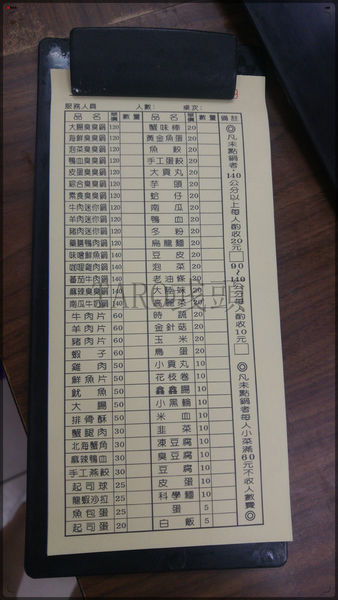 服務人員 人數: 桌次:
品名 單價 數量 品名 單價 數量 備註
大腸臭臭鍋 120 蟹味棒 20
海鮮臭臭鍋 120 黃金魚蛋 20
泡菜臭臭鍋 120 魚餃 20
鴨血臭臭鍋 120 手工蛋餃 20
皮蛋臭臭鍋 120 大貢丸 20
綜合臭臭鍋 120 芋頭 20
素食臭臭鍋 120 蛤仔 20
牛肉迷你鍋 120 南瓜 20
羊肉迷你鍋 120 鴨血 20
豬肉迷你鍋 120 冬粉 20
藥膳鴨肉鍋 120 烏龍麵 20
味噌鮮魚鍋 140 豆皮 20
咖哩雞肉鍋 140 泡菜 20
蕃茄牛肉鍋 140 老油條 20
麻辣臭臭鍋 140 20
南瓜牛奶鍋 140 20
牛肉片 60 時蔬 20
羊肉片 60 金針菇 20
豬肉片 60 玉米 20
蝦子 60 鳥蛋 20
雞肉 50 小貢丸 10
鮮魚片 50 花枝卷 10
魷魚 50 鑫鑫腸 10
大腸 50 小黑輪 10
排骨酥 50 米血 10
蟹腿肉 30 韭菜 10
北海蟹角 30 凍豆腐 10
麻辣鴨血 30 臭豆腐 10
手工燕餃 30 豆腐 10
起司球 25 皮蛋 10
龍蝦沙拉 25 科學麵 10
魚包蛋 25 蛋 5
起司蛋 20 白飯 5
◎凡未點鍋者，140公分以上每人酌收20元□90-140公分每人酌收10元□
◎凡未點鍋者每人小菜滿60元不收人數費◎